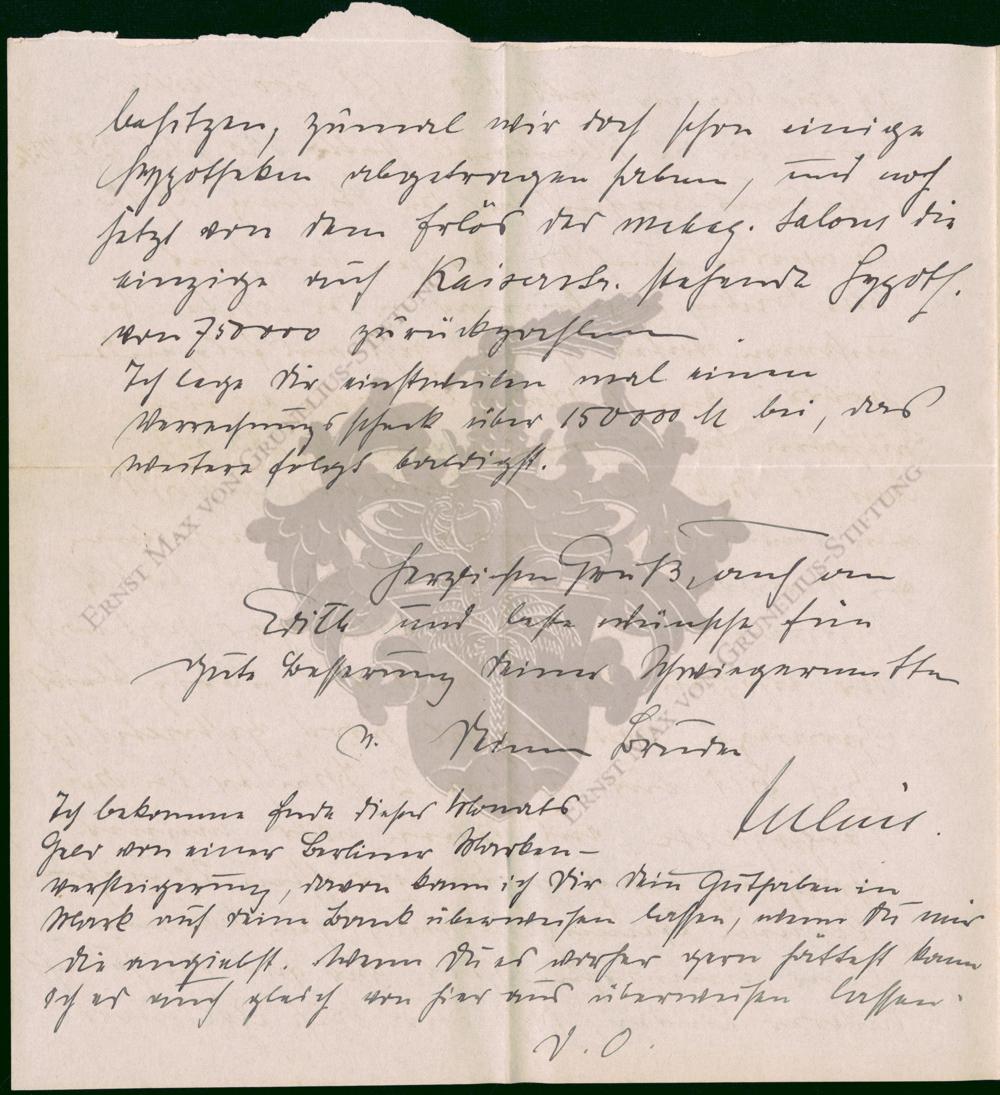 besitzen, zumal wir doch schon einige
Hypotheken abgetragen haben, und noch
jetzt von dem Erlös des Salons die
einzige auf Kaiserstr. stehende Hypoth.
von 750000 zurückzahlen
Ich lege Dir einstweilen mal einen
Verrechnungsscheck über 150000 M bei, das
weitere folgt baldigst.
Herzlichen Gruß, auch an
Edith und beste Wünsche für
gute Besserung Deiner Schwiegermutter
v. Deinem Bruder
Julius.
Ich bekomme Ende dieses Monats
Geld von einer Berliner Marken-
versteigerung, davon kann ich Dir Dein Guthaben in
Mark auf Deine Bank überweisen lassen, wenn Du mir
die angiebst. Wenn Du es vorher gern hättest kann
ich es auch gleich von hier aus überweisen lassen.
D. O.
ERNST MAX VON GRUNELIUS-STIFTUNG
ERNST MAX VON GRUNELIUS-STIFTUNG